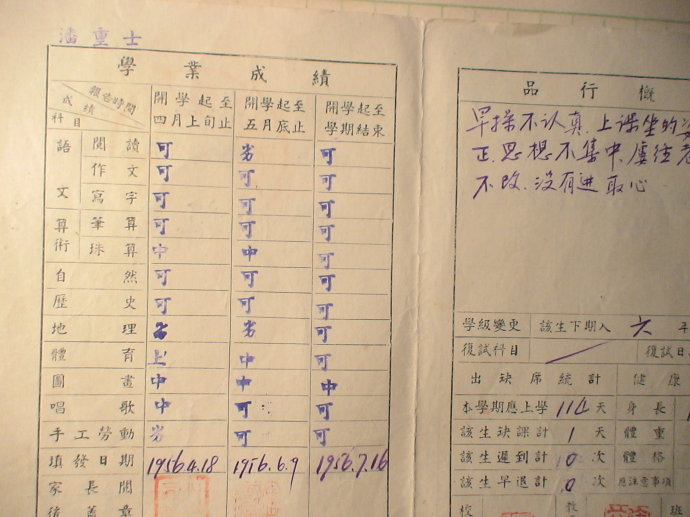 潘重士
學業成績
報告時間
成績
科目
開學起至四月上旬止
開學起至五月底止
開學起至學期結束
語文
閱讀 可 劣 可
作文 可 可 可
寫字 可 可 可
算術
筆算 可 可 可
珠算 中 中 可
自然 可 可 可
歷史 可 可 可
地理 劣 可
體育 上 中 可
圖畫 中 中 中
唱歌 中 可 可
手工勞動 劣 可 可
填發日期 1956.4.18 1956.6.9 1956.7.16
家長閱
後蓋章
品行概
早操不认真、上课坐的姿
正、思想不集中、屡经老
不改、没有进取心
學級變更 該生下期入 六 年
復試科目 復試日
出缺席統計 健康
本學期應上學 114 天 身長
該生缺課計 1 天 體重
該生遲到計 0 次 體格
該生早退計 0 次 應注意事項
校 教 班